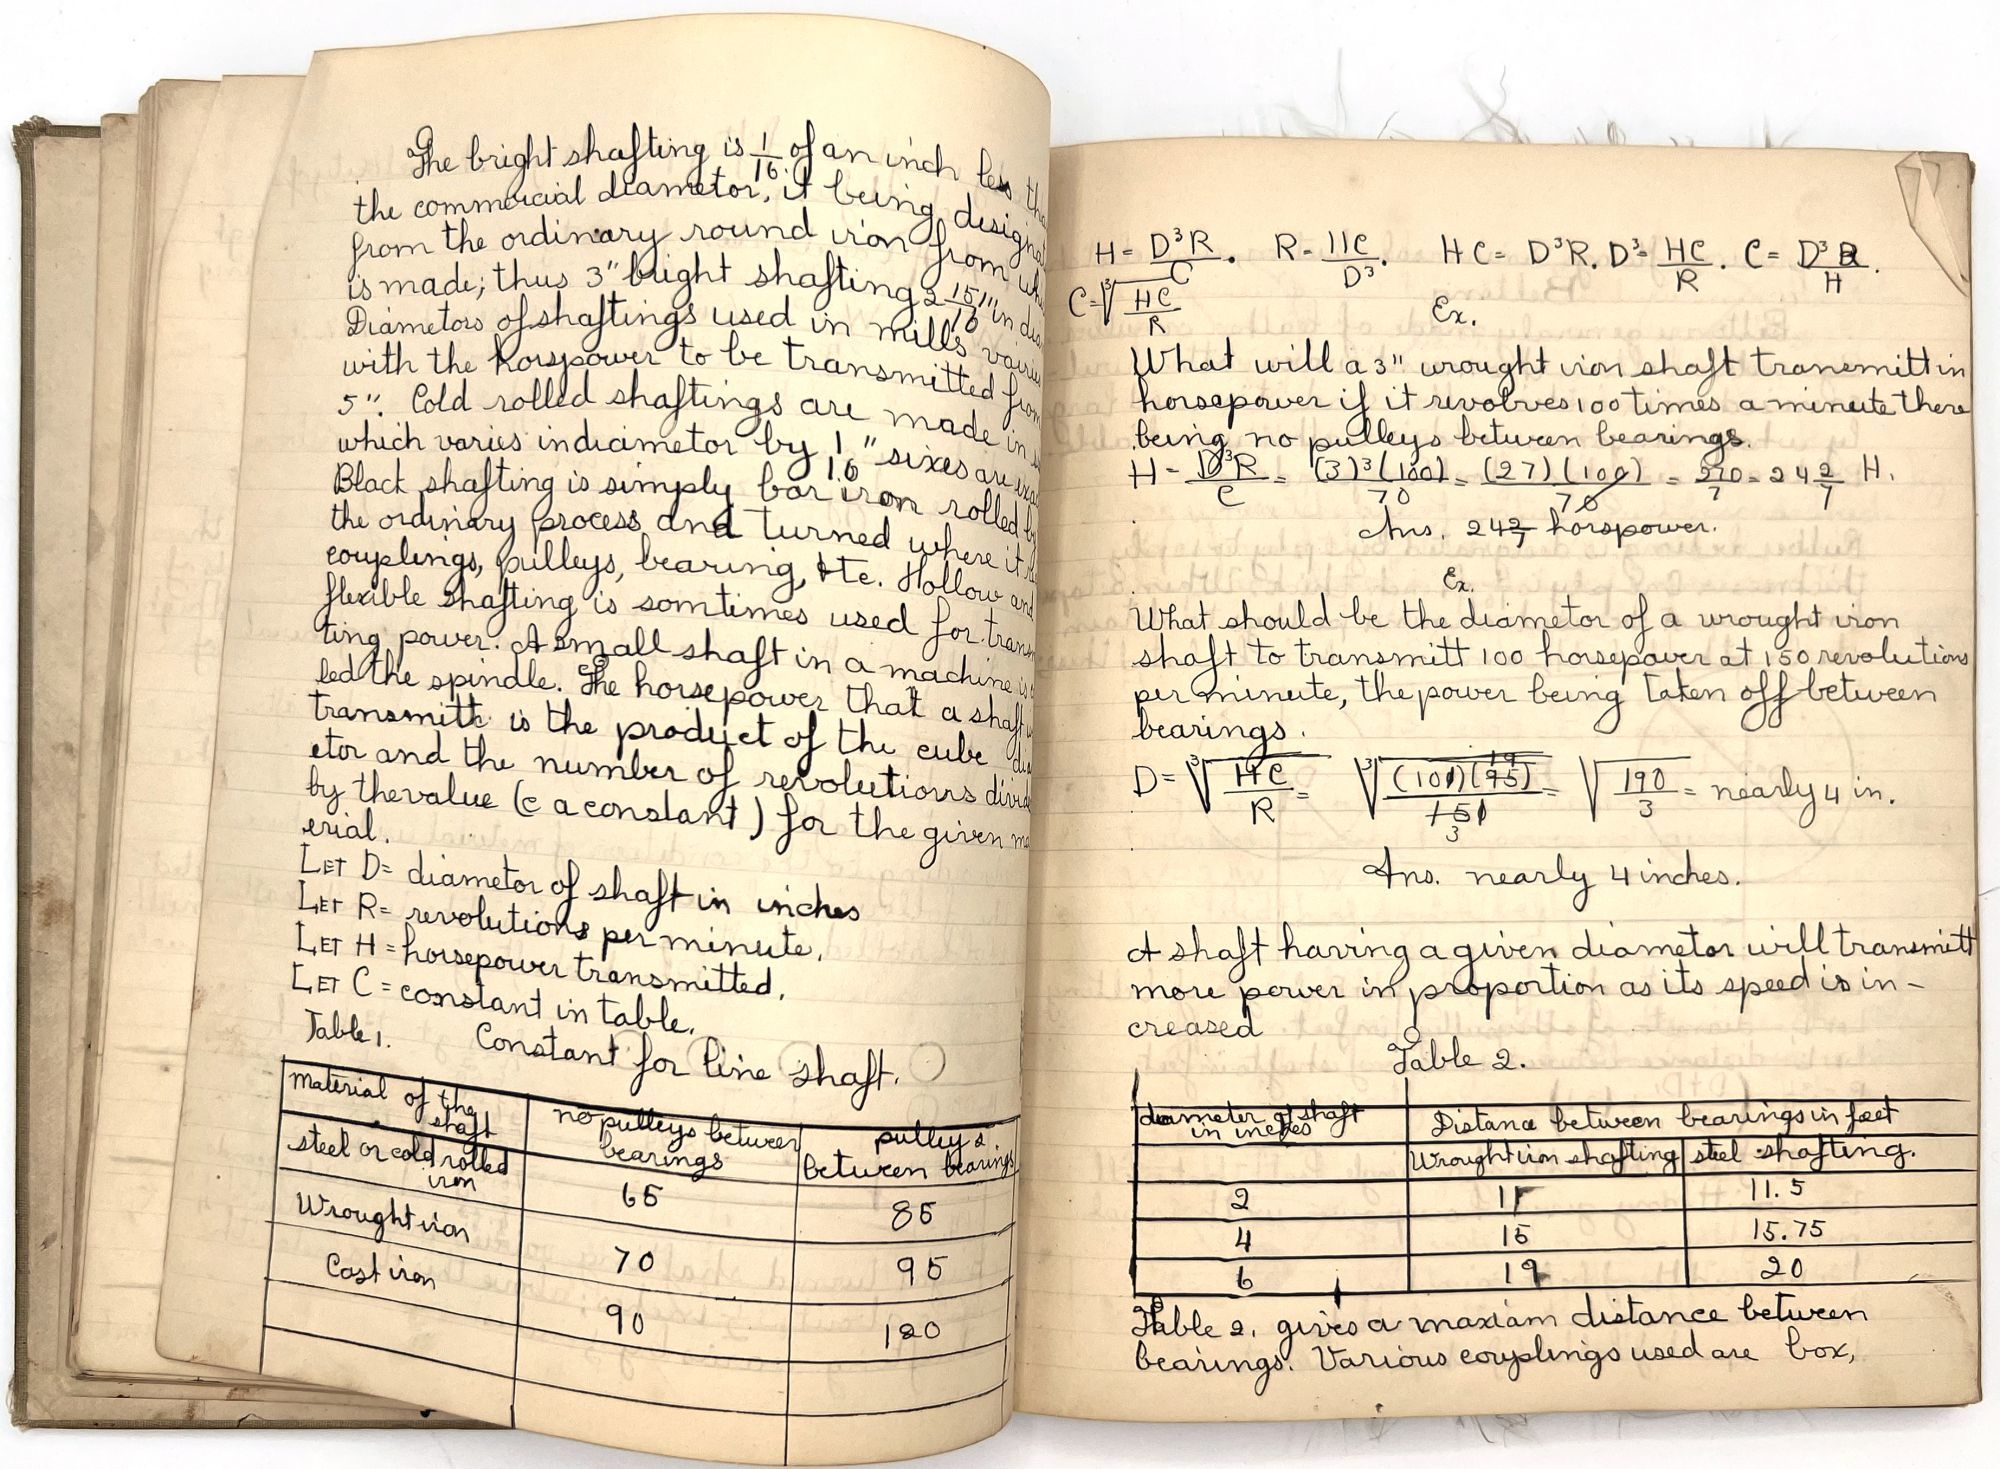 The bright shafting is 1/16 of an inch less
the commercial diametor, it being
from the ordinary round iron from
is made; thus 3" bright shafting 2 15/16" in
Diametors of shaftings used in mills
with the horsepower to be transmitted from
5". Cold rolled shaftings are made in
which varies in diametor by 1/16" sixes are
Black shafting is simply bar iron rolled
the ordinary process and turned where it
couplings, pulleys, bearing, &te. Hollow and
flexible shafting is somtimes used for
ting power. A small shaft in a machine is
led the spindle. The horsepower that a shaft
transmitt is the product of the cube
etor and the number of revolutions
by the value (c a constant) for the given
erial.
LET D= diametor of shaft in inches
LET R= revolutions per minute.
LET H = horsepower transmitted.
LET C = constant in table.
Table 1. Constant for line shaft.
material of the shaft
no pulleys between bearings
pulleys between bearings
steel or cold rolled iron 65 85
Wrought iron 70 95
Cast iron 90 120
H = D³R/C. R = HC/D³. HC = D³R. D³ = HC/R. C = D³R/H.
C = ∛HC/R
Ex.
What will a 3" wrought iron shaft transmitt in
horsepower if it revolves 100 times a minute there
being no pulleys between bearings.
H = D³R/C = (3)³(100)/70 = (27)(100)/70 = 270/7 = 24 2/7 H.
Ans. 24 2/7 horspower.
Ex.
What should be the diametor of a wrought iron
shaft to transmitt 100 horsepower at 150 revolutions
per minute, the power being taken off between
bearings.
D = ∛HC/R = ∛(100)(95)/150 = √190/3 = nearly 4 in.
19
3
Ans. nearly 4 inches.
A shaft having a given diametor will transmitt
more power in proportion as its speed is in-
creased
Table 2.
diameter of shaft in inches
Distance between bearings in feet
Wrought iron shafting steel shafting.
2 11 11.5
4 15 15.75
6 19 20
Table 2. gives a maxiam distance between
bearings. Various couplings used are box,